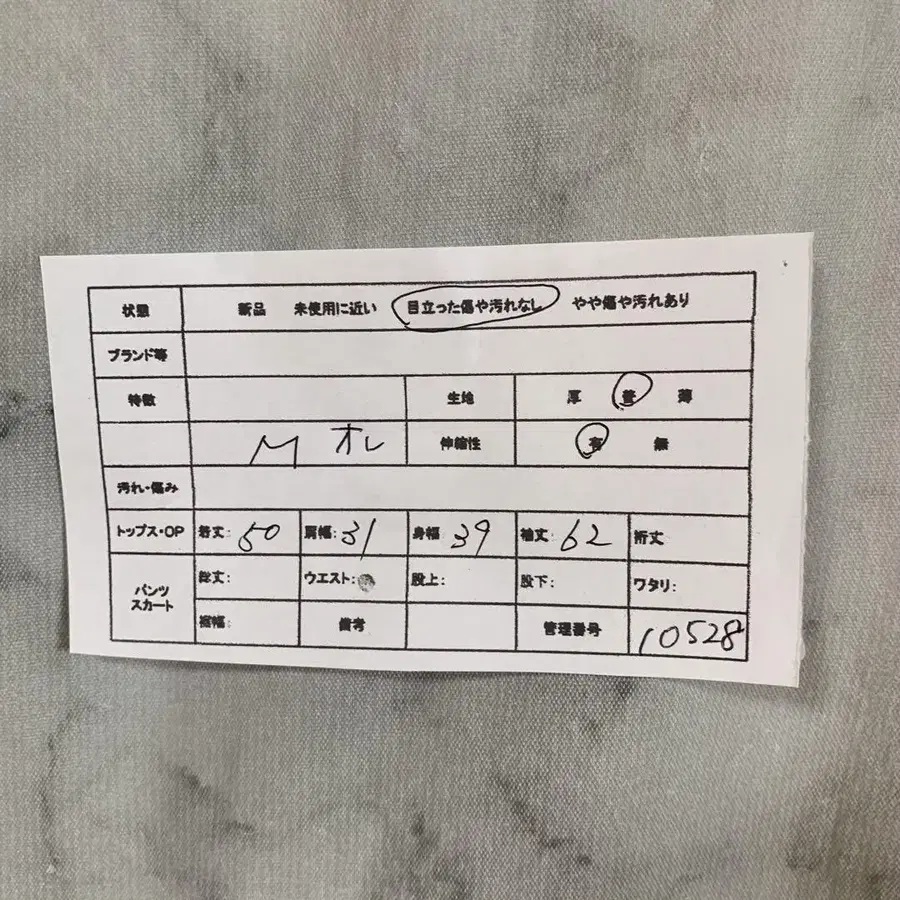 状態 新品 未使用に近い 目立った傷や汚れなし やや傷や汚れあり
ブランド等
特徴 生地 厚 普 薄
M オレ 伸縮性 有 無
汚れ・傷み
トップス・OP 着丈: 50 肩幅: 31 身幅: 39 袖丈: 62 裄丈
パンツ スカート 総丈: ウエスト: 股上: 股下: ワタリ:
裾幅: 備考 管理番号 10528